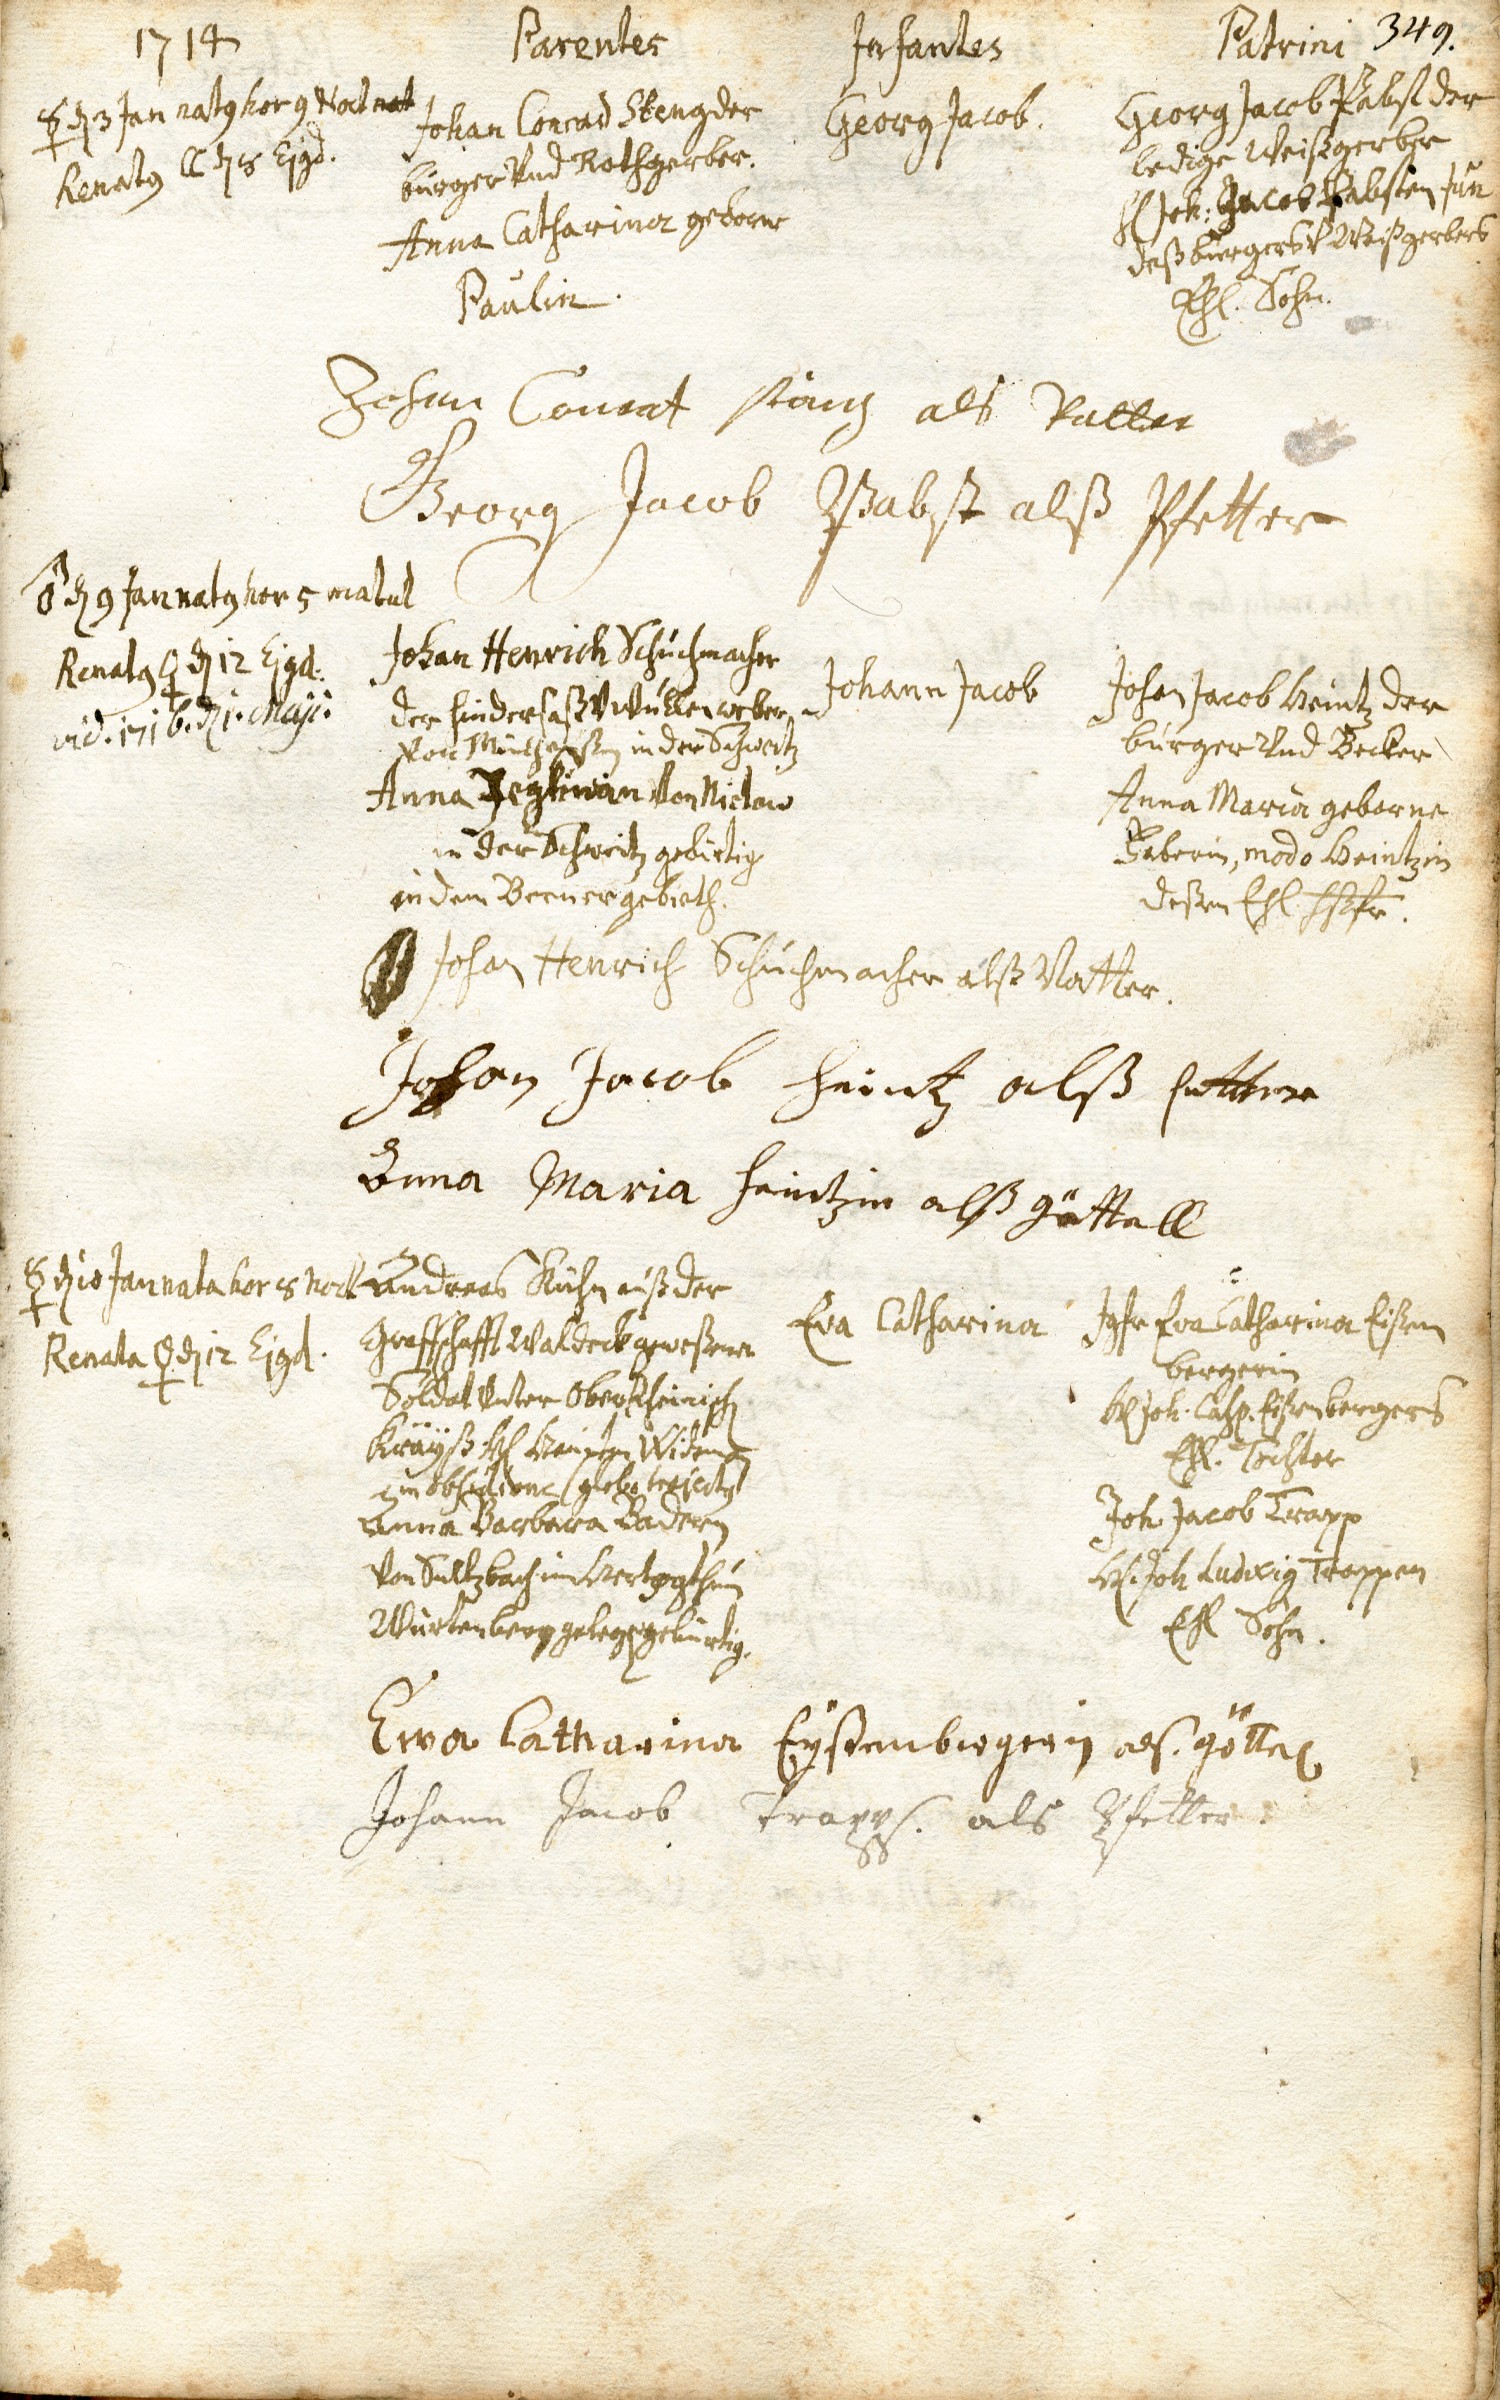 1714 Parentes Infantes Patrini 349.
☿ d 3 Jan natg hor 9 Noct
Renatg ☾ d 8 Ejgd.
Johan Conrad Steng der
burger Vnd Rothgerber.
Anna Catharina geborne
Paulin.
Georg Jacob.
Georg Jacob Pabst der
ledige Weißgerber
Joh: Jacob Pabsten Jun
deß burgers V Weißgerbers
Ehl. Sohn.
Johan Conrat als Vatter
Georg Jacob Pabst alß Pfetter
♂ d 9 Jan natg hor 5 matut
Renatg ♀ d 12 Ejgd.
vid. 1716. d 1. Maji.
Johan Henrich Schuchmacher
der hindersaß V Wullenweber
von in der Schweitz
Anna von Nidaw
in der Schweitz gebirtig
in dem Berner gebieth.
Johann Jacob
Johan Jacob Heintz der
burger Vnd Becker
Anna Maria geborne
Faberin, modo Heintzin
deßen Ehl. Hßfr.
Johan Henrich Schuchmacher alß Vatter.
Johan Jacob Heintz alß
Anna Maria Heintzin alß göttell
☿ d 10 Jan nata hor 8 Noct
Renata ♀ d 12 Ejgd.
Andreas Kuhn auß der
Graffschafft Waldeck geweßener
Soldat Vnter Ober Rheinisch
Kräyß
Anna Barbara Badern
Von Sultzbach im Hertzogthum
Würtenberg gelegen gebürtig.
Eva Catharina
Jgfr Eva Catharina Eißen
bergerin
Joh. Casp. Eißenbergers
Ehl. Tochter
Joh Jacob Trapp
Joh Ludwig Trappen
Ehl Sohn.
Eva Catharina Eyßenbergerin als. götte
Johann Jacob Trapp. als Pfetter.